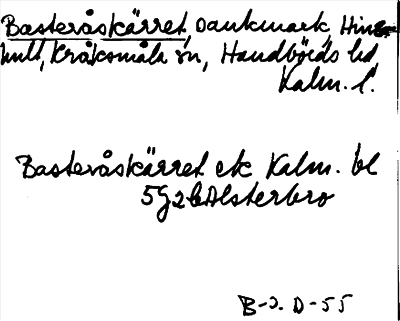 Basteråskärret, sankmark, Hins-
hult, Kråksmåla sn, Handbörds hd
Kalm. l.
Basteråskärret ek Kalm. bl
5G2b Alsterbro
B-J. D-55